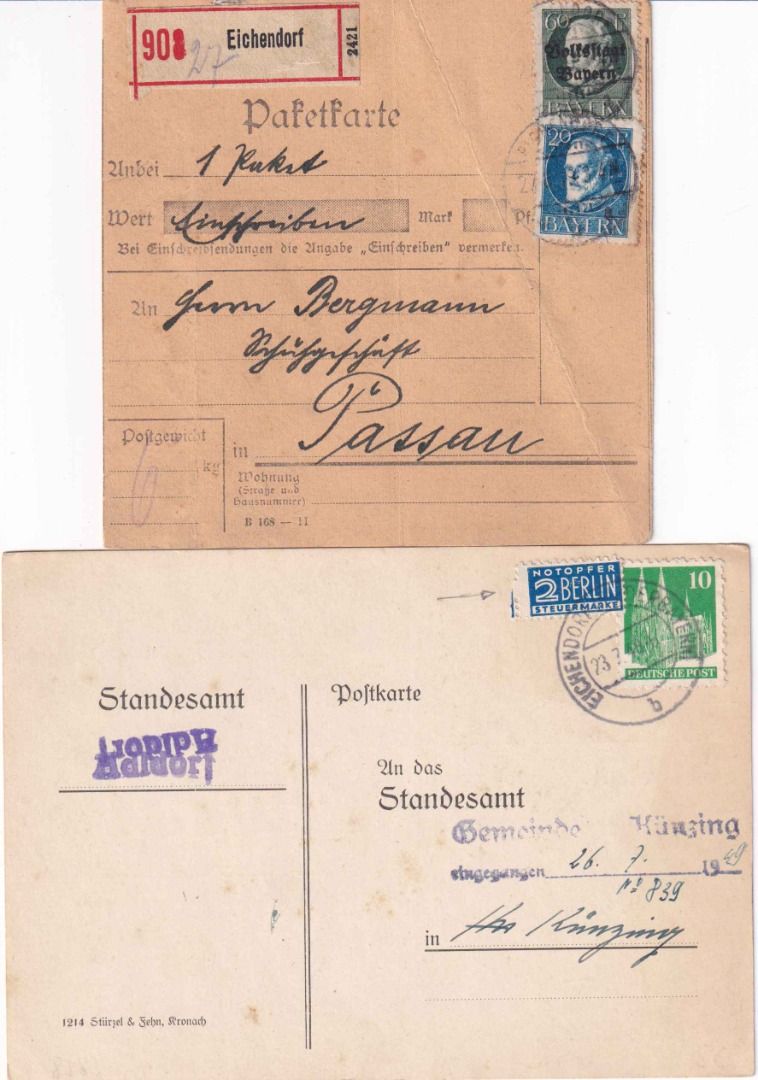 908
27
Eichendorf
2421
60 P
Volksstaat
Bayern
BAYERN
20 P
BAYERN
Paketkarte
Anbei 1 Paket
Wert Einschreiben Mark Pf.
Bei Einschreibsendungen die Angabe „Einschreiben" vermerken.
An Herrn Bergmann
Schuhgeschäft
in Passau
Postgewicht
6 kg
Wohnung
(Straße und
Hausnummer)
B 168 — 11
NOTOPFER
2 BERLIN
STEUERMARKE
10
DEUTSCHE POST
EICHENDORF
23.7.
b
Standesamt
Adldorf
Adldorf
Postkarte
An das
Standesamt
Gemeinde Künzing
eingegangen 26. 7. 1949
No 839
in Künzing
1214 Stürzel & Fehn, Kronach